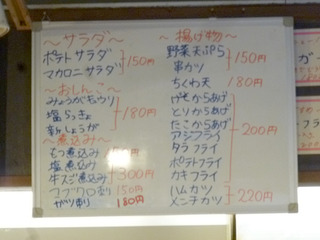 ～サラダ～
ポテトサラダ
マカロニサラダ
150円
～おしんこ～
みょうがきゅうり
塩らっきょ
新しょうが
180円
～煮込み～
もつ煮込み
塩煮込み
牛スジ煮込み
300円
コブクロ刺 150円
ガツ刺 180円
～揚げ物～
野菜天ぷら
串カツ
150円
ちくわ天 180円
げそからあげ
とりからあげ
たこからあげ
アジフライ
タラフライ
ポテトフライ
カキフライ
200円
ハムカツ
メンチカツ
220円